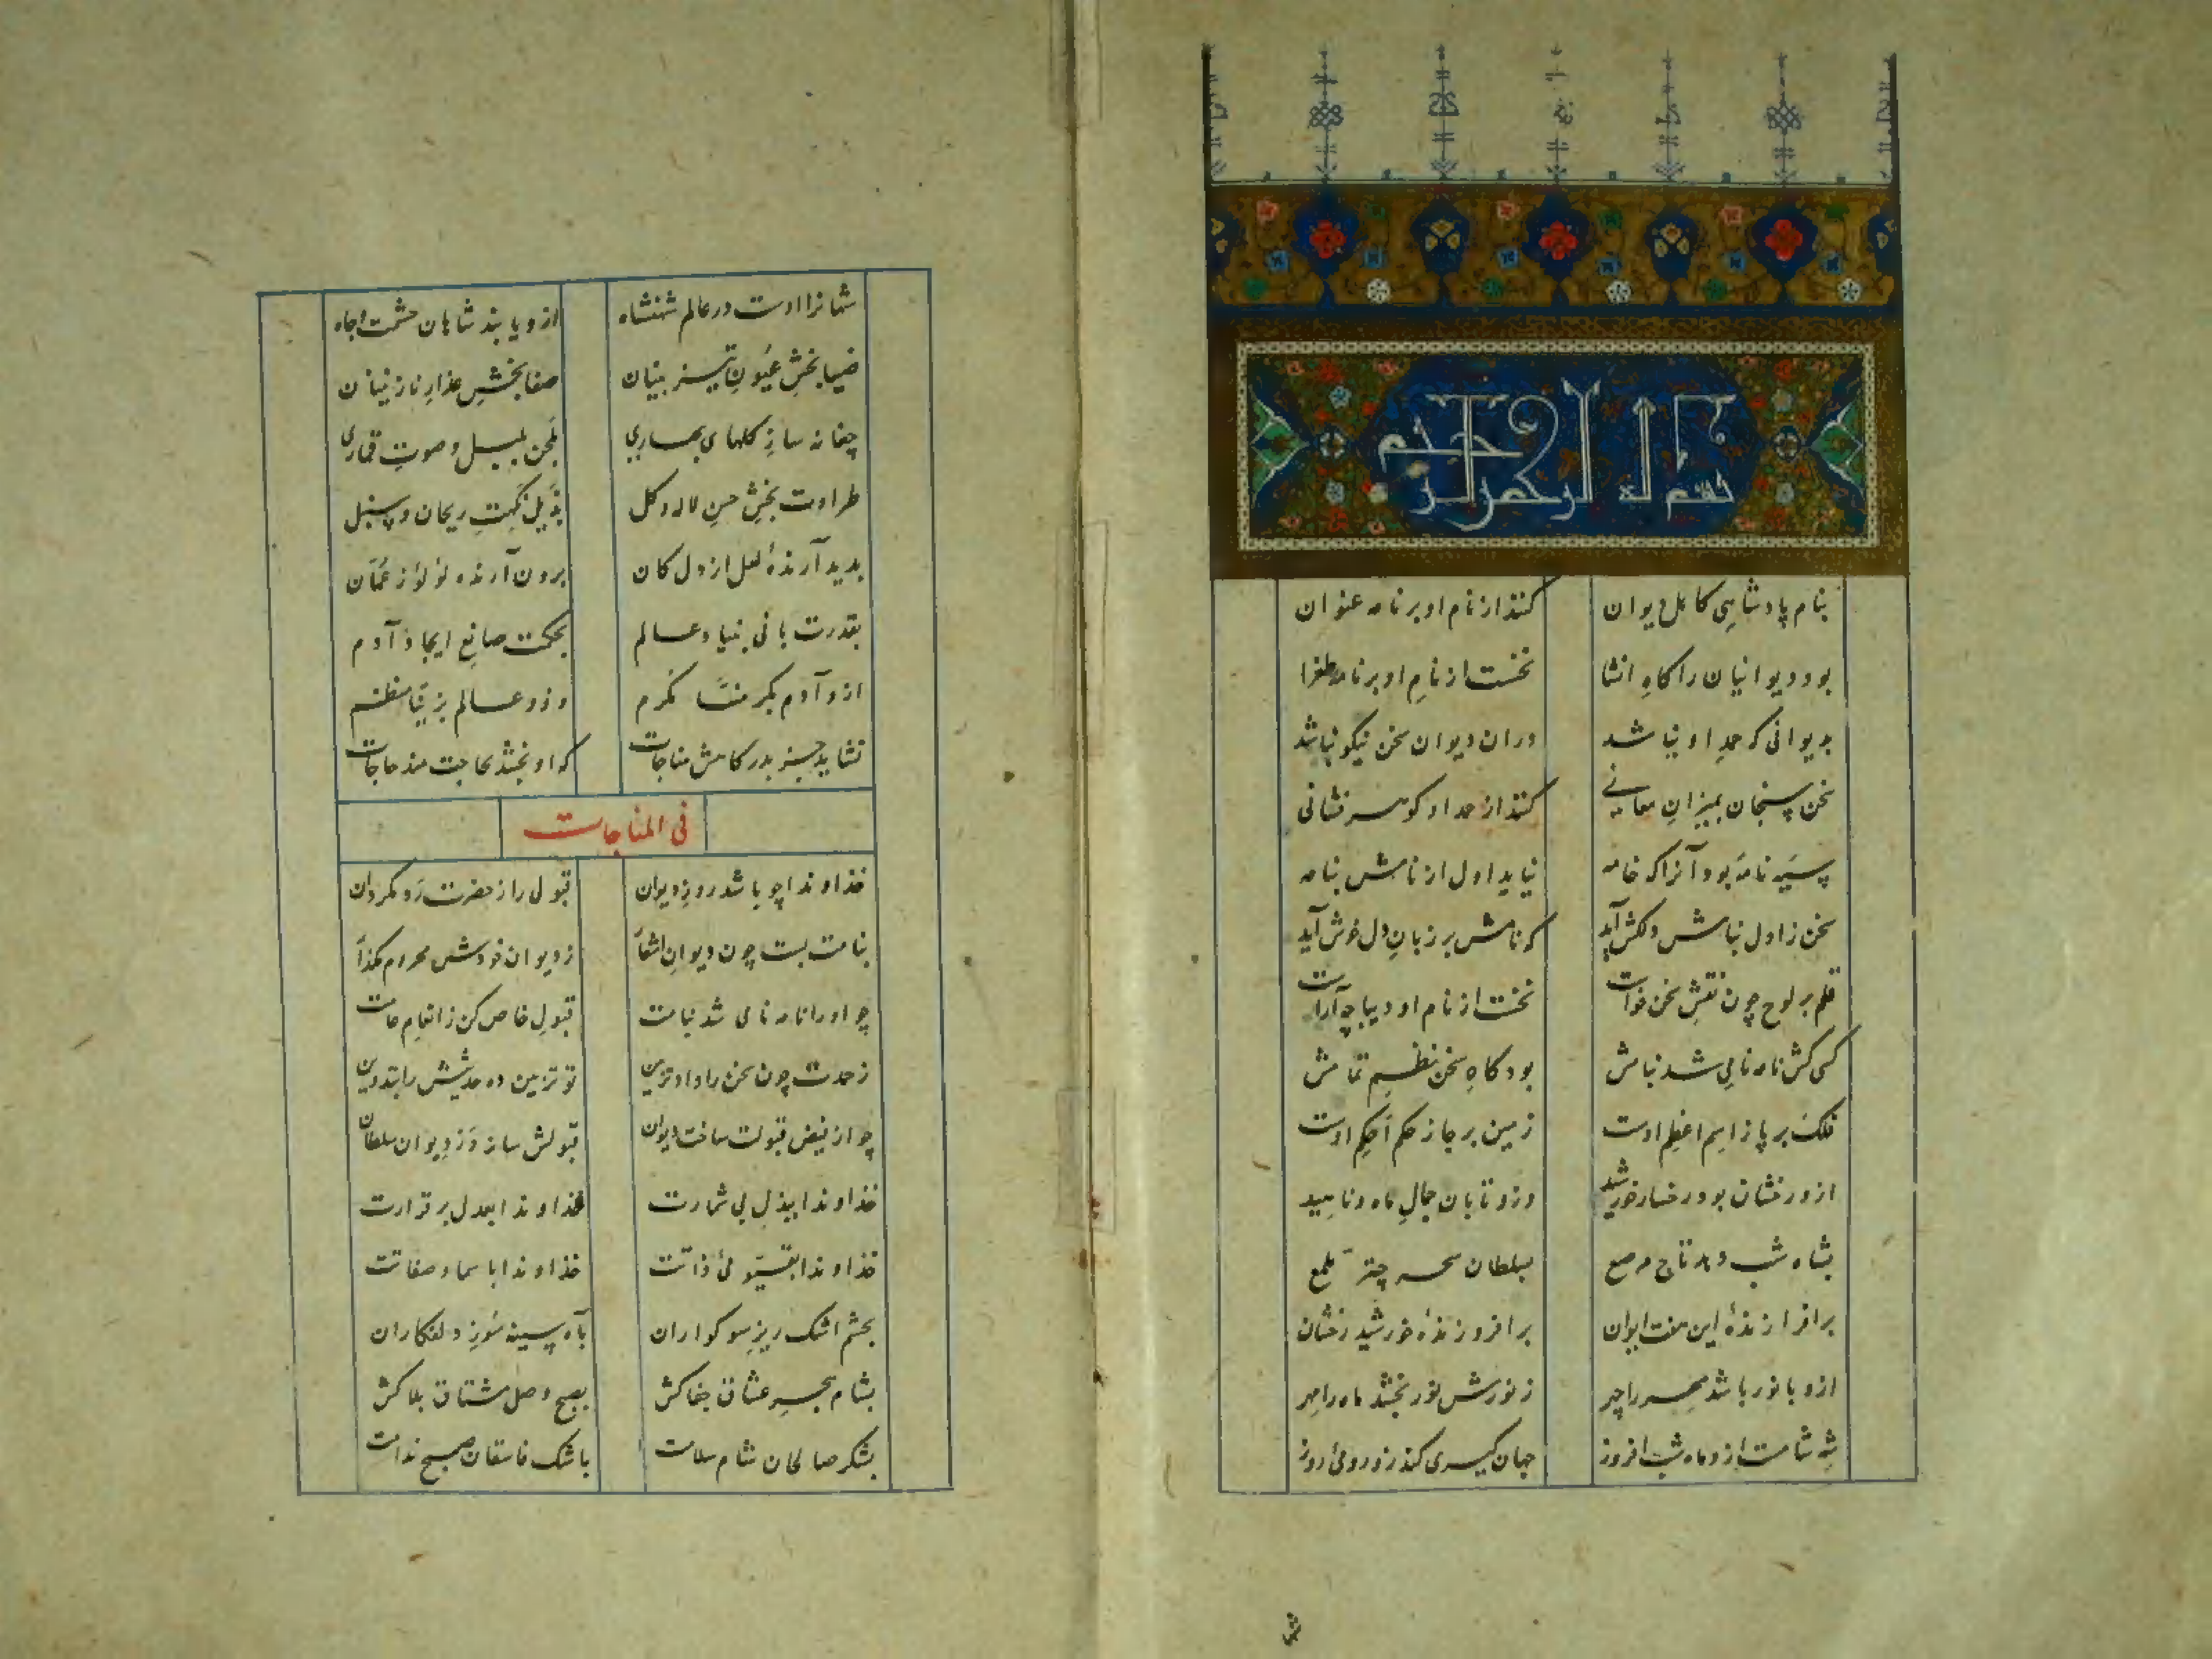 بسم الله الرحمن الرحیم
بنام پادشاهی کاهل دیوان کنند از نام او بر نامه عنوان
بود دیوانیان را کاه انشا نخست از نام او بر نامه طغرا
بدیوانی که حمد او نباشد دران دیوان سخن نیکو نباشد
سخن سنجان بمیزان معانی کنند از حمد او کوهر فشانی
سیه نامه بود آنرا که خامه نیاید اول از نامش بنامه
سخن ز اول بنامش دلکش آید که نامش بر زبان دل خوش آید
قلم بر لوح چون نقش سخن خواست نخست از نام او دیباچه آراست
کسی کش نامه نامی شد بنامش بود کاه سخن نظم تمامش
فلک بر پا ز اسم اعظم اوست زمین بر جا ز حکم احکم اوست
ازو رخشان بود رخسار خورشید وزو تابان جمال ماه و ناهید
بشاه شب دهد تاج مرصع بسلطان سحر چتر ملمع
برافرازندهٔ این هفت ایوان برافروزندهٔ خورشید رخشان
ازو با نور باشد مهر را چهر ز نورش نور بخشد ماه را مهر
شه شامست ازو ماه شب افروز جهان کیری کند زو رومی روز
ش
شهانرا اوست در عالم شهنشاه ازو یابند شاهان حشمت و جاه
ضیا بخش عیون تیزبینان صفا بخش عذار نازنینان
چغانه ساز کلهای بهاری بلحن بلبل و صوت قماری
طراوت بخش حسن لاله و کل بذیل نکهت ریحان و سنبل
پدید آرندهٔ لعل از دل کان برون آرنده لؤلؤ ز عمان
بقدرت بانی بنیاد عالم بحکمت صانع ایجاد آدم
ازو آدم بکرمنا مکرم وزو عالم بزینا منظم
نشاید جز بدرکاهش مناجات که او بخشد بحاجت مند حاجات
فی المناجات
خداوندا چو باشد روز دیوان قبولی را ز حضرت رد مکردان
بنامت بست چون دیوان اشعار ز دیوان خودش محروم مکذار
چو او را نامه نامی شد بنامت قبول خاص کن ز انعام عامت
ز حمدت چون سخن را داد تزیین تو تزیین ده حدیثش را بتدوین
چو از فیض قبولت ساخت دیوان قبولش ساز در دیوان سلطان
خداوندا ببذل بی شمارت خداوندا بعدل برقرارت
خداوندا بقیومی ذاتت خداوندا باسما و صفاتت
بچشم اشک ریز سوکواران بآه سینه سوز دلفکاران
بشام هجر عشاق جفاکش بصبح وصل مشتاق بلاکش
بشکر صالحان شام سلامت باشک فاسقان صبح ندامت